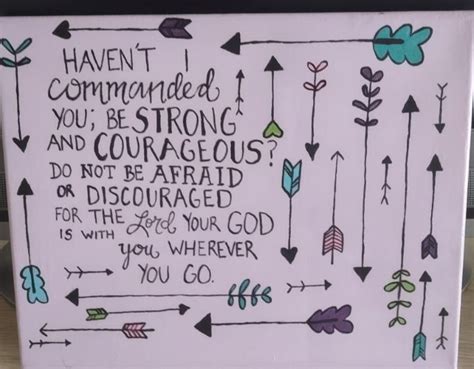 HAVEN'T I
commanded
YOU; BE STRONG
AND COURAGEOUS?
DO NOT BE AFRAID
OR DISCOURAGED
FOR THE Lord YOUR GOD
IS WITH you WHEREVER
YOU GO.